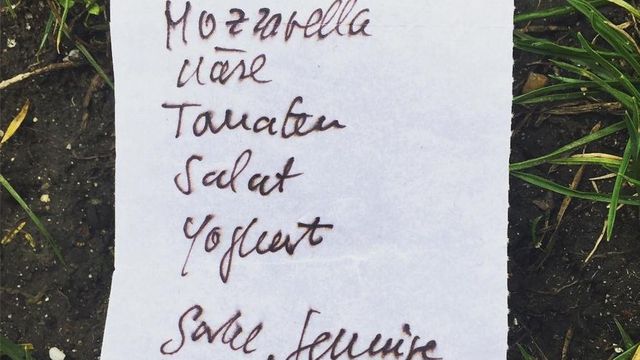 Mozzarella
Käse
Tomaten
Salat
Yoghurt
Gemüse